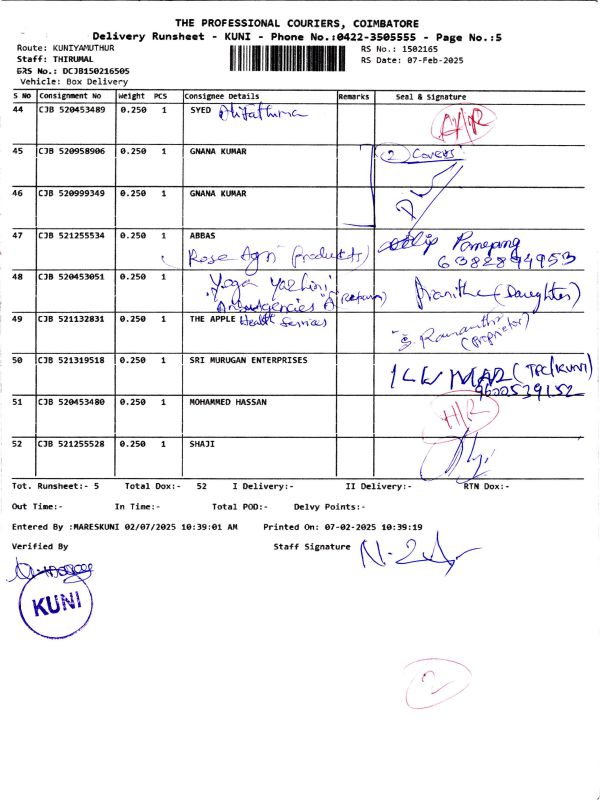 THE PROFESSIONAL COURIERS, COIMBATORE
Delivery Runsheet - KUNI - Phone No.:0422-3505555 - Page No.:5
Route: KUNIYAMUTHUR
RS No.: 1502165
Staff: THIRUMAL
RS Date: 07-Feb-2025
DRS No.: DCJB150216505
Vehicle: Box Delivery
S NO Consignment No Weight PCS Consignee Details Remarks Seal & Signature
44 CJB 520453489 0.250 1 SYED
45 CJB 520958906 0.250 1 GNANA KUMAR 2 Covers
46 CJB 520999349 0.250 1 GNANA KUMAR
47 CJB 521255534 0.250 1 ABBAS
Rose Agri (Products)
6382894953
48 CJB 520453051 0.250 1 Yoga Yazhini
(Daughter)
49 CJB 521132831 0.250 1 THE APPLE Health Services
(Proprietor)
50 CJB 521319518 0.250 1 SRI MURUGAN ENTERPRISES
(TPC/KUNI)
9600539152
51 CJB 520453480 0.250 1 MOHAMMED HASSAN H/R
52 CJB 521255528 0.250 1 SHAJI
Tot. Runsheet:- 5 Total Dox:- 52 I Delivery:- II Delivery:- RTN Dox:-
Out Time:- In Time:- Total POD:- Delvy Points:-
Entered By :MARESKUNI 02/07/2025 10:39:01 AM Printed On: 07-02-2025 10:39:19
Verified By Staff Signature
KUNI
2